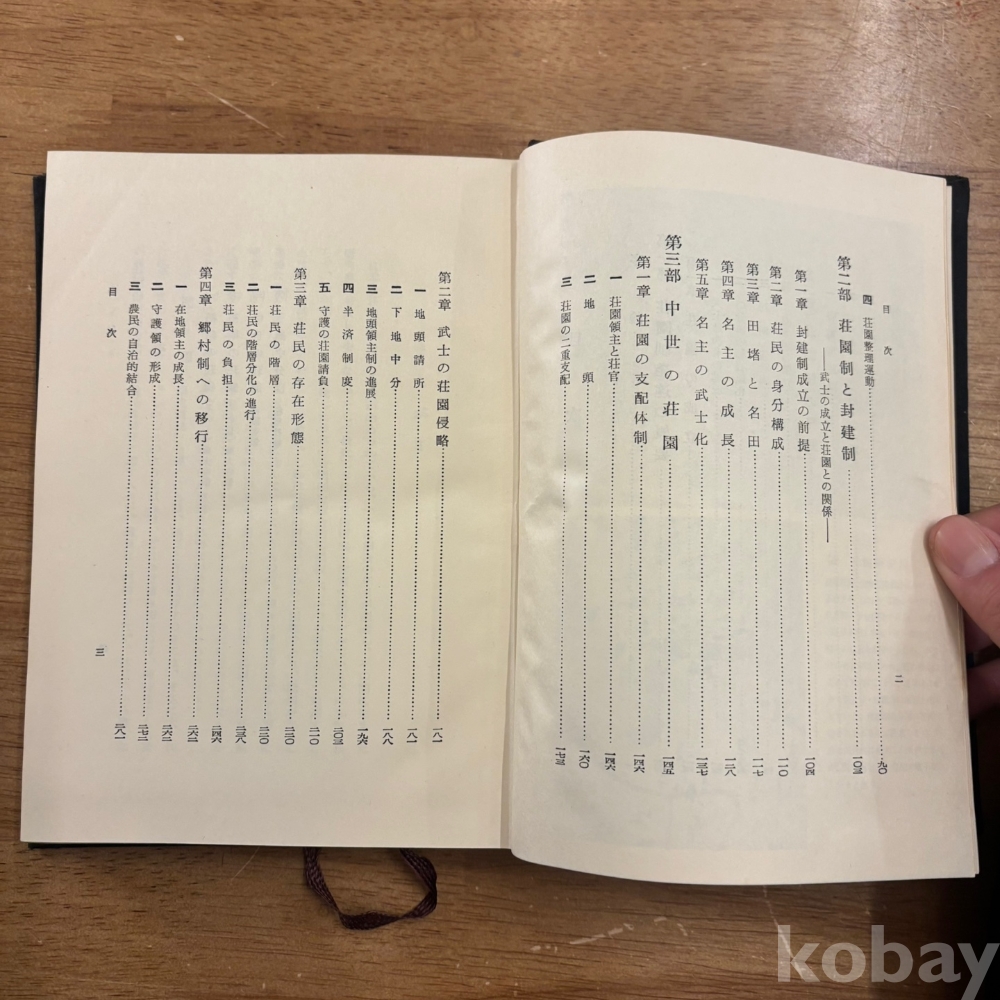 目次
二
四 荘園整理運動 九〇
第二部 荘園制と封建制 一〇三
――武士の成立と荘園との関係――
第一章 封建制成立の前提 一〇四
第二章 荘民の身分構成 一一〇
第三章 田堵と名田 一一七
第四章 名主の成長 一二八
第五章 名主の武士化 一三七
第三部 中世の荘園 一四五
第一章 荘園の支配体制 一四六
一 荘園領主と荘官 一四六
二 地頭 一六〇
三 荘園の二重支配 一七三
第二章 武士の荘園侵略 一八一
一 地頭請所 一八一
二 下地中分 一八八
三 地頭領主制の進展 一九六
四 半済制度 二〇三
五 守護の荘園請負 二一〇
第三章 荘民の存在形態 二二〇
一 荘民の階層 二二〇
二 荘民の階層分化の進行 二三八
三 荘民の負担 二四六
第四章 郷村制への移行 二六二
一 在地領主の成長 二六二
二 守護領の形成 二七二
三 農民の自治的結合 二八一
目次
三
kobay